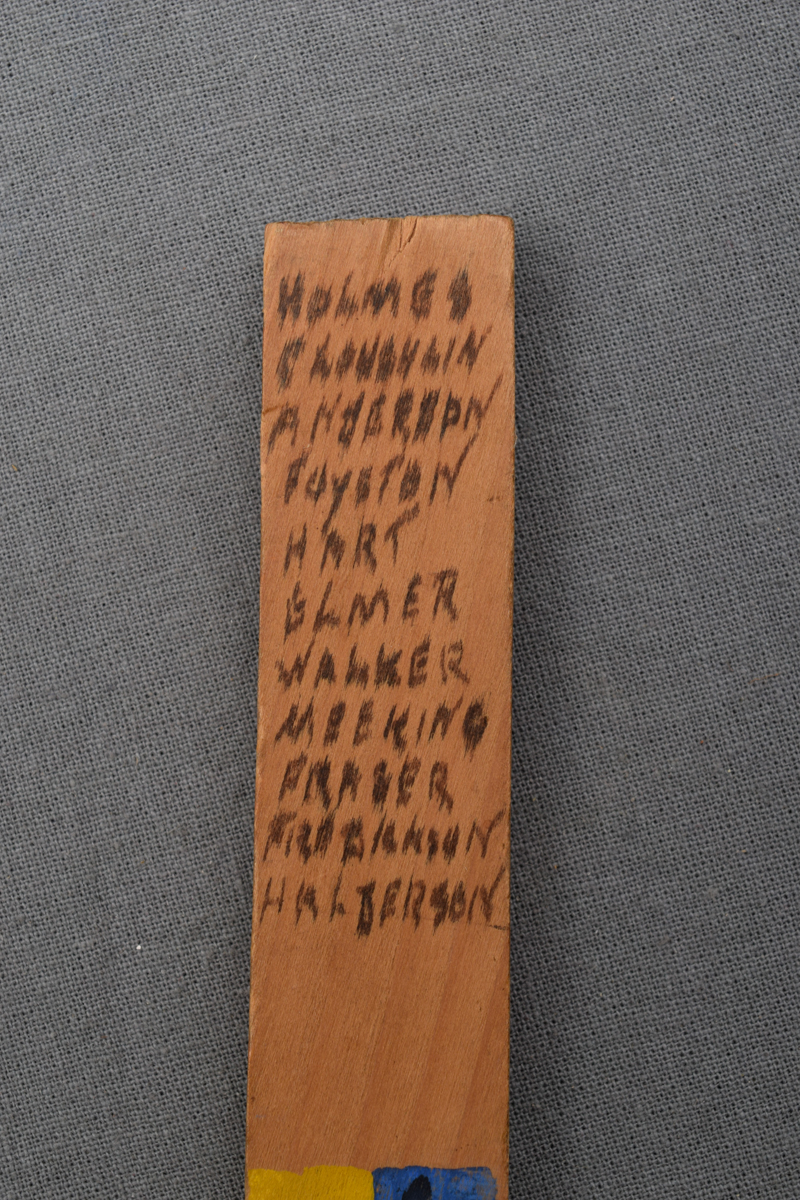 HOLMES
C LOUGHLIN
ANDERSON
FOYSTON
HART
ELMER
WALKER
MEEKING
FRASER
FREDRICKSON
HALDERSON